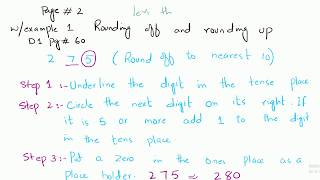 Page # 2
w/example 1 Rounding off and rounding up
D1 Pg # 60
2 7 5 ( Round off to nearest 10)
Step 1 :- Underline the digit in the tense place
Step 2:- Circle the next digit on its right. If
it is 5 or more add 1 to the digit
in the tens place
Step 3:- Put a Zero in the ones place as a
Place holder. 275 ≈ 280